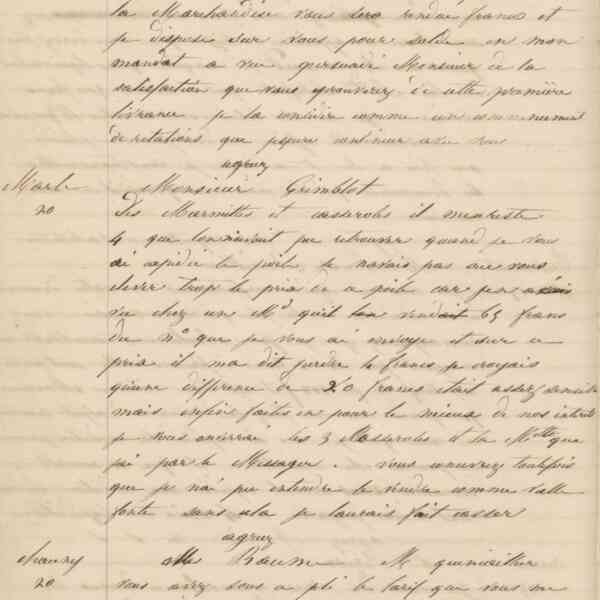 la Marchandise vous sera rendue franco et
je dispose sur vous pour solde en mon
mandat a vue persuadé Monsieur de la
satisfaction que vous eprouverez de cette première
livrance je la considère comme un commencement
de relations que jespère continuer avec vous
agreez
Marle Monsieur Grimblot
20 Les Marmittes et casseroles il me reste
4 que lon navait pu retrouver quand je vous
ai expedié le poele je navais pas cru vous
elever trop le prix de ce poele car jen avais
vu chez un Md quil vendait 65 francs
du no que je vous ai envoye et sur ce
prix il ma dit perdre francs je croyais
quune difference de 20 francs etait assez sensible
mais enfin faites en pour le mieux de nos interets
je vous enverrai les 3 Casseroles et la Mitte que
jai par le Messager. vous conviendrez toutefois
que je nai pu entendre le vendre comme vielle
fonte sans cela je laurais fait casser
agreez
Chauny Monsieur
20 vous avez sous ce pli le tarif que vous me